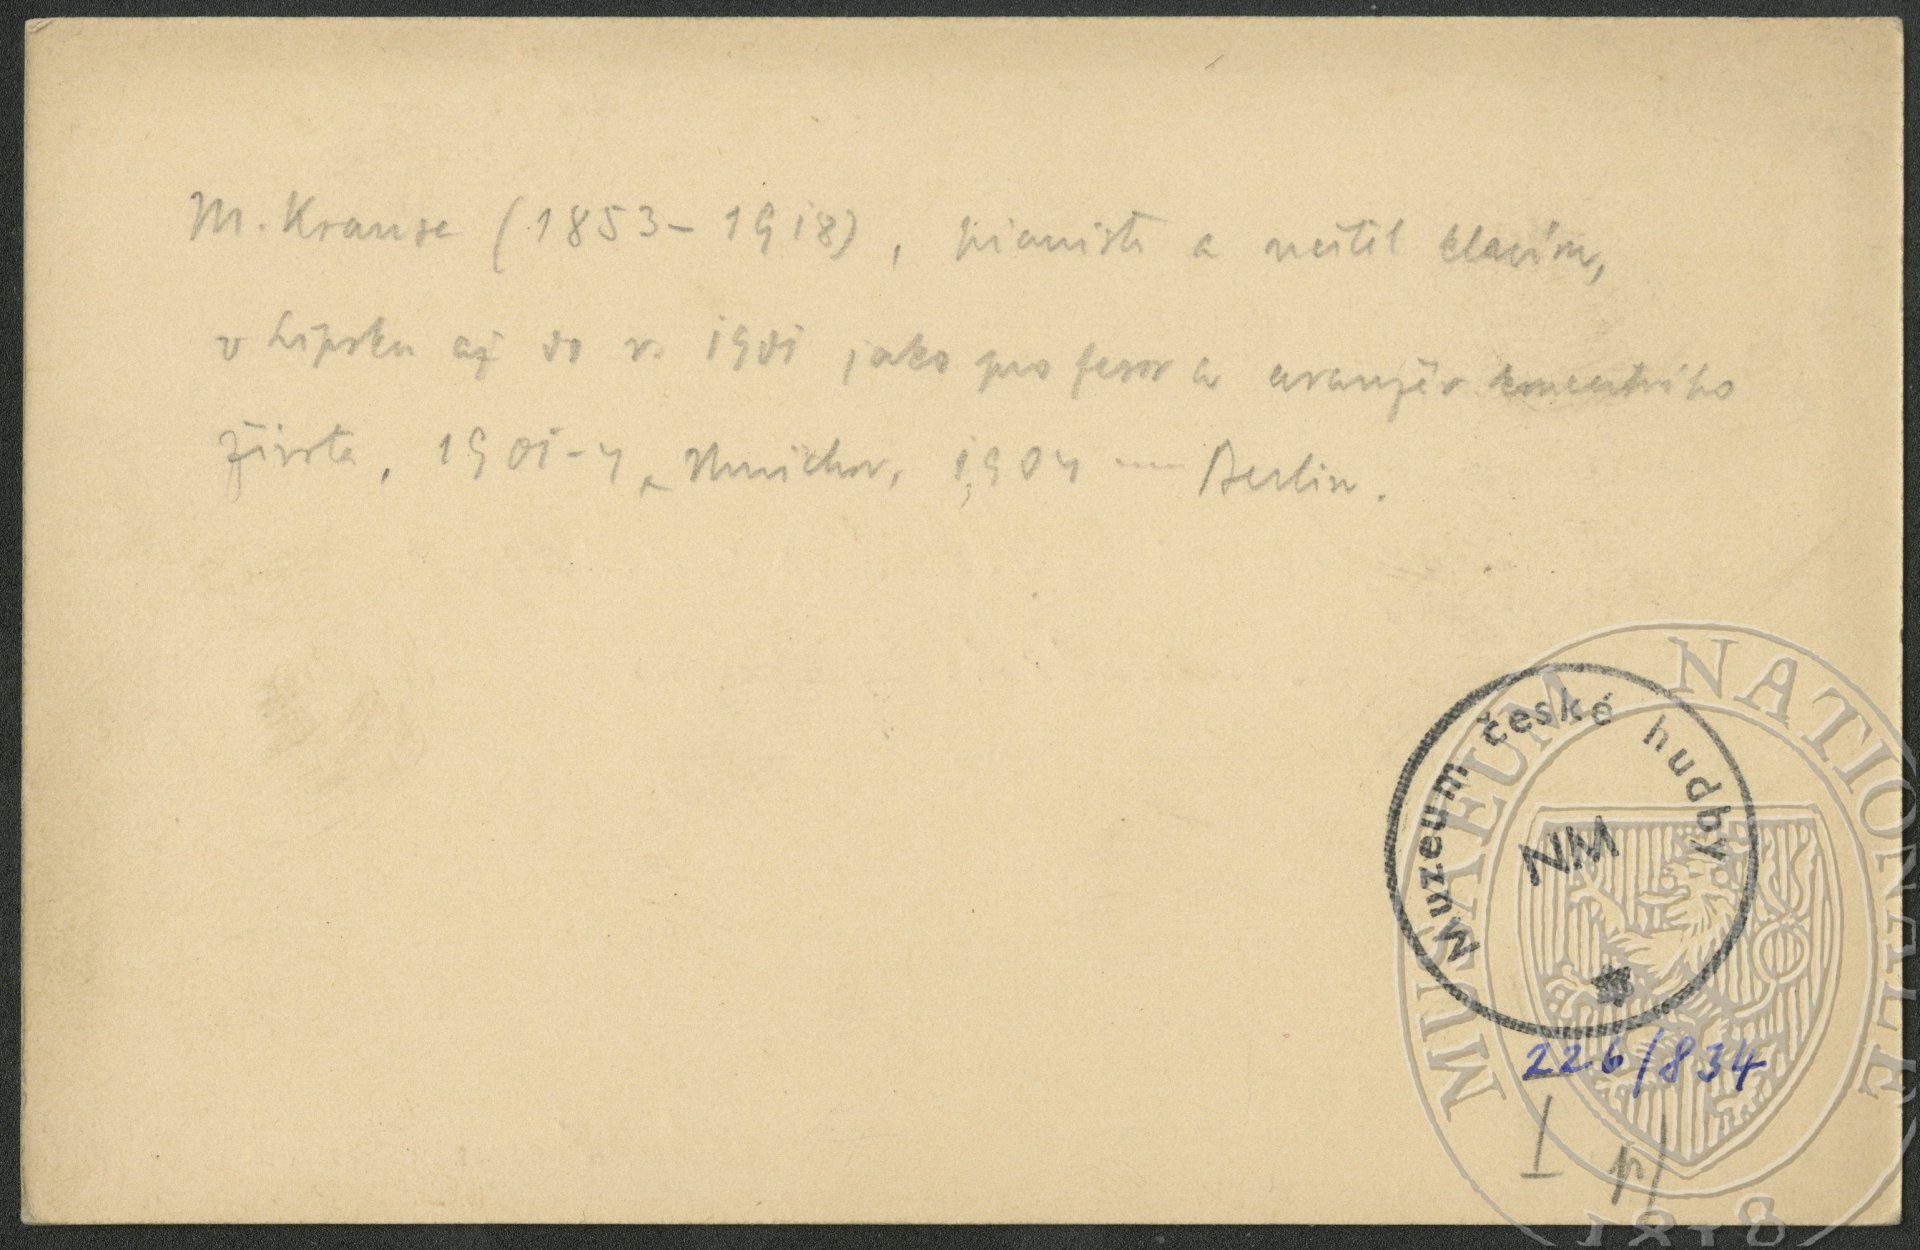 M. Krause (1853-1918), pianista a učitel klavíru,
v Lipsku až do r. 1901 jako profesor a aranžér koncertního
života, 1901-4 v Mnichov, 1904 — Berlin.
Muzeum české hudby
NM
226/834
I
MUSAEUM NATIONALE
1818